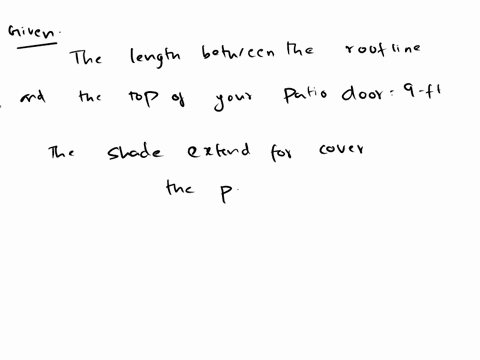 Given.
The length between the roofline
and the top of your Patio door = 9-ft
The shade extend for cover
the p